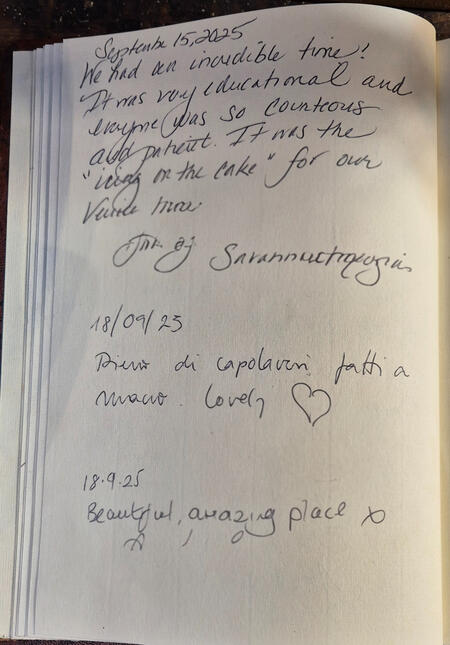 September 15, 2025
We had an incredible time!
It was very educational and
everyone was so courteous
and patient. It was the
"icing on the cake" for our
Venice
18/09/25
Pieno di capolavori fatti a
mano. Lovely ♡
18.9.25
Beautiful, amazing place x